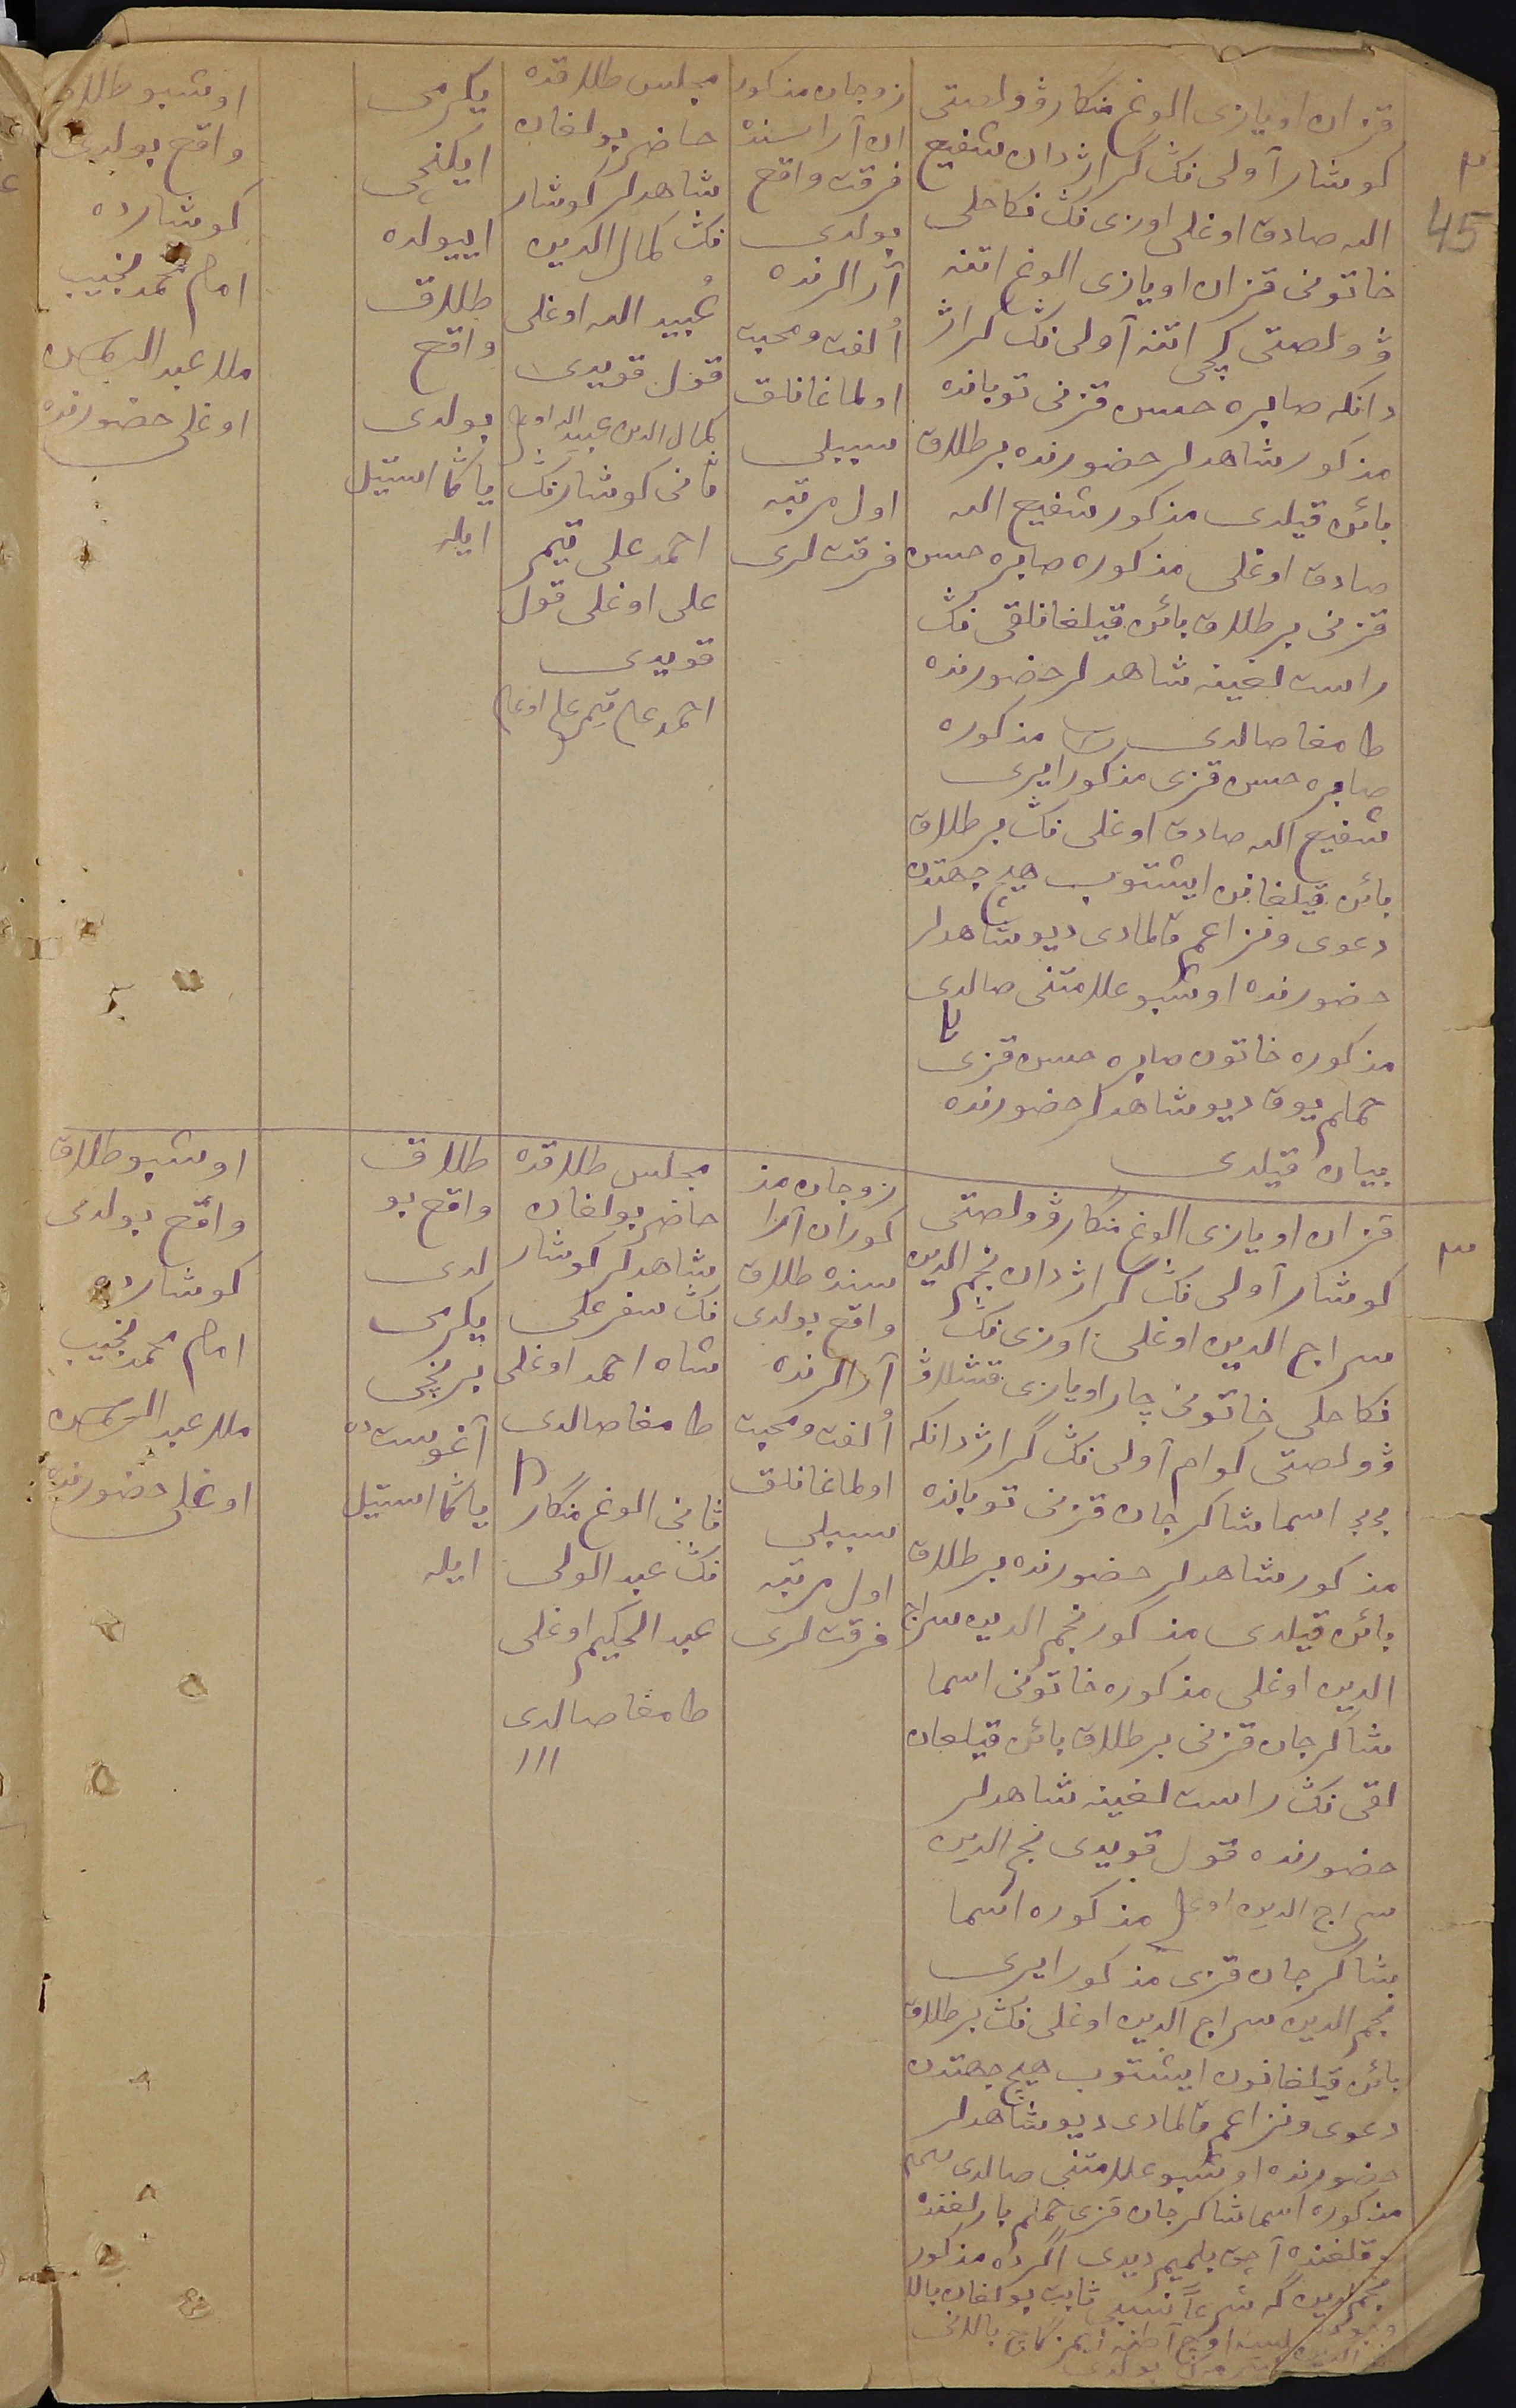 ٢
45
قزان اويازى الوغ منگار ۋولصتى
كوشار آولى نڭ كراژدان شفيع
الله صادق اوغلى اوزى نڭ نكاحلى
خاتونى قزان اويازى الوغ اتنه
ۋولصتى كچى اتنه آولى نڭ كراژ
دانكه صابره حسن قزنى توبانده
مذكور شاهدلر حضورنده بر طلاق
بائن قيلدى مذكور شفيع الله
صادق اوغلى مذكوره صابره حسن
قزنى بر طلاق بائن قيلغانلقى نڭ
راست لغينه شاهدلر حضورنده
طامغا صالدى مذكوره
صابره حسن قزى مذكور ايرى
شفيع الله صادق اوغلى نڭ بر طلاق
بائن قيلغانن ايشتوب هيچ جهتدن
دعوى ونزاعم قالمادى ديو شاهدلر
حضورنده اوشبو علامتنى صالدى
مذكوره خاتون صابره حسن قزى
حملم يوق ديو شاهدلر حضورنده
بيان قيلدى
زوجان مذكور
ان آراسنده
فرقت واقع
بولدى
آرالرنده
اُلفت ومحبت
اولماغانلق
سببلى
اول مرتبه
فرقت لرى
مجلس طلاقده
حاضر بولغان
شاهدلر كوشار
نڭ كمال الدين
عُبيد الله اوغلى
قول قويدى
كمال الدين عبيد الله اوغلى
ثانى كوشارنڭ
احمد على قيم
على اوغلى قول
قويدى
احمد على قيم على اوغلى
يكرمى
ايكنچى
اييولده
طلاق
واقع
بولدى
ياڭا استيل
ايله
اوشبو طلاق
واقع بولدى
كوشارده
امام محمد نجيب
ملا عبد الرحمن
اوغلى حضورنده
٣
قزان اويازى الوغ منگار ۋولصتى
كوشار آولى نڭ كراژدان نجم الدين
سراج الدين اوغلى اوزى نڭ
نكاحلى خاتونى چار اويازى قشلاۋ
ۋولصتى كوام آولى نڭ گراژدانكه
بى بى اسما شاكرجان قزنى توبانده
مذكور شاهدلر حضورنده بر طلاق
بائن قيلدى مذكور نجم الدين سراج
الدين اوغلى مذكوره خاتونى اسما
شاكرجان قزنى بر طلاق بائن قيلغان
لقى نڭ راست لغينه شاهدلر
حضورنده قول قويدى نجم الدين
سراج الدين اوغلى مذكوره اسما
شاكرجان قزى مذكور ايرى
نجم الدين سراج الدين اوغلى نڭ بر طلاق
بائن قيلغانون ايشتوب هيچ جهتدن
دعوى ونزاعم قالمادى ديو شاهدلر
حضورنده اوشبو علامتنى صالدى
مذكوره اسما شاكرجان قزى حملم بارلغنده
يوقلغنده آچق بلميم ديدى اگرده مذكور
نجم الدين گه شرعاً نسبى ثابت بولغان بالا
زوجان مذ
كوران آرا
سنده طلاق
واقع بولدى
آرالرنده
اُلفت ومحبت
اولماغانلق
سببلى
اول مرتبه
فرقت لرى
مجلس طلاقده
حاضر بولغان
شاهدلر كوشار
نڭ سفرعلى
شاه احمد اوغلى
طامغا صالدى
ثانى الوغ منگار
نڭ عبد الولى
عبد الحكيم اوغلى
طامغا صالدى
١١١
طلاق
واقع بو
لدى
يكرمى
برنچى
آغوست ده
ياڭا استيل
ايله
اوشبو طلاق
واقع بولدى
كوشارده
امام محمد نجيب
ملا عبد الرحمن
اوغلى حضورنده